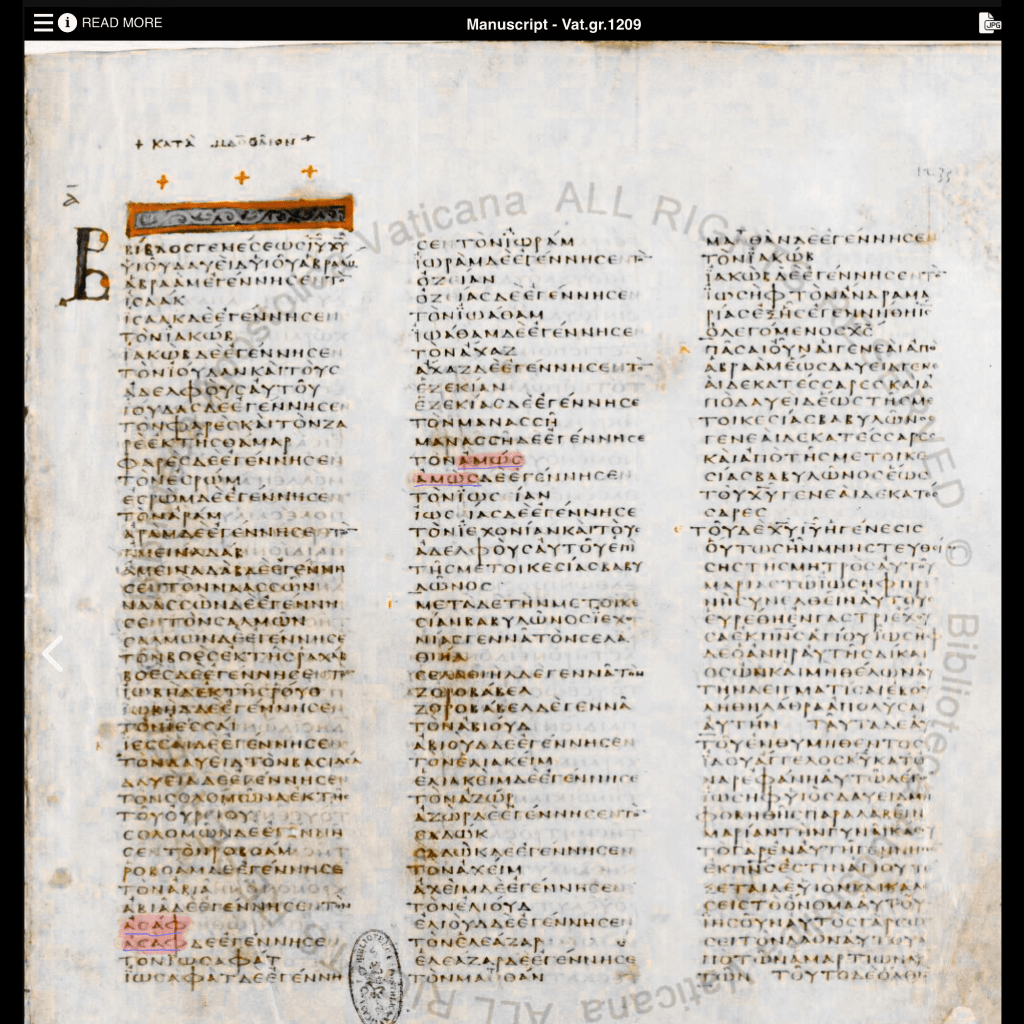 READ MORE
Manuscript - Vat.gr.1209
+ ΚΑΤΑ ΜΑΘΘΑΙΟΝ +
Α
ΒΙΒΛΟΣ ΓΕΝΕΣΕΩΣ ΙΥ ΧΥ
ΥΙΟΥ ΔΑΥΕΙΔ ΥΙΟΥ ΑΒΡΑΑΜ
ΑΒΡΑΑΜ ΕΓΕΝΝΗΣΕΝ ΤΟΝ
ΙΣΑΑΚ
ΙΣΑΑΚ ΔΕ ΕΓΕΝΝΗΣΕΝ
ΤΟΝ ΙΑΚΩΒ
ΙΑΚΩΒ ΔΕ ΕΓΕΝΝΗΣΕΝ
ΤΟΝ ΙΟΥΔΑΝ ΚΑΙ ΤΟΥΣ
ΑΔΕΛΦΟΥΣ ΑΥΤΟΥ
ΙΟΥΔΑΣ ΔΕ ΕΓΕΝΝΗΣΕΝ
ΤΟΝ ΦΑΡΕΣ ΚΑΙ ΤΟΝ ΖΑ
ΡΕ ΕΚ ΤΗΣ ΘΑΜΑΡ
ΦΑΡΕΣ ΔΕ ΕΓΕΝΝΗΣΕΝ
ΤΟΝ ΕΣΡΩΜ
ΕΣΡΩΜ ΔΕ ΕΓΕΝΝΗΣΕΝ
ΤΟΝ ΑΡΑΜ
ΑΡΑΜ ΔΕ ΕΓΕΝΝΗΣΕΝ ΤΟΝ
ΑΜΕΙΝΑΔΑΒ
ΑΜΕΙΝΑΔΑΒ ΔΕ ΕΓΕΝΝΗ
ΣΕΝ ΤΟΝ ΝΑΑΣΣΩΝ
ΝΑΑΣΣΩΝ ΔΕ ΕΓΕΝΝΗ
ΣΕΝ ΤΟΝ ΣΑΛΜΩΝ
ΣΑΛΜΩΝ ΔΕ ΕΓΕΝΝΗΣΕ
ΤΟΝ ΒΟΕΣ ΕΚ ΤΗΣ ΡΑΧΑΒ
ΒΟΕΣ ΔΕ ΕΓΕΝΝΗΣΕΝ ΤΟΝ
ΙΩΒΗΔ ΕΚ ΤΗΣ ΡΟΥΘ
ΙΩΒΗΔ ΔΕ ΕΓΕΝΝΗΣΕΝ
ΤΟΝ ΙΕΣΣΑΙ
ΙΕΣΣΑΙ ΔΕ ΕΓΕΝΝΗΣΕΝ
ΤΟΝ ΔΑΥΕΙΔ ΤΟΝ ΒΑΣΙΛΕΑ
ΔΑΥΕΙΔ ΔΕ ΕΓΕΝΝΗΣΕΝ
ΤΟΝ ΣΟΛΟΜΩΝΑ ΕΚ ΤΗΣ
ΤΟΥ ΟΥΡΙΟΥ
ΣΟΛΟΜΩΝ ΔΕ ΕΓΕΝΝΗ
ΣΕΝ ΤΟΝ ΡΟΒΟΑΜ
ΡΟΒΟΑΜ ΔΕ ΕΓΕΝΝΗΣΕ
ΤΟΝ ΑΒΙΑ
ΑΒΙΑ ΔΕ ΕΓΕΝΝΗΣΕΝ ΤΟΝ
ΑΣΑΦ
ΑΣΑΦ ΔΕ ΕΓΕΝΝΗΣΕΝ
ΤΟΝ ΙΩΣΑΦΑΤ
ΙΩΣΑΦΑΤ ΔΕ ΕΓΕΝΝΗ
ΣΕΝ ΤΟΝ ΙΩΡΑΜ
ΙΩΡΑΜ ΔΕ ΕΓΕΝΝΗΣΕΝ ΤΟΝ
ΟΖΕΙΑΝ
ΟΖΕΙΑΣ ΔΕ ΕΓΕΝΝΗΣΕΝ
ΤΟΝ ΙΩΑΘΑΜ
ΙΩΑΘΑΜ ΔΕ ΕΓΕΝΝΗΣΕΝ
ΤΟΝ ΑΧΑΖ
ΑΧΑΖ ΔΕ ΕΓΕΝΝΗΣΕΝ ΤΟΝ
ΕΖΕΚΙΑΝ
ΕΖΕΚΙΑΣ ΔΕ ΕΓΕΝΝΗΣΕ
ΤΟΝ ΜΑΝΑΣΣΗ
ΜΑΝΑΣΣΗ ΔΕ ΕΓΕΝΝΗΣΕ
ΤΟΝ ΑΜΩΣ
ΑΜΩΣ ΔΕ ΕΓΕΝΝΗΣΕΝ
ΤΟΝ ΙΩΣΕΙΑΝ
ΙΩΣΕΙΑΣ ΔΕ ΕΓΕΝΝΗΣΕ
ΤΟΝ ΙΕΧΟΝΙΑΝ ΚΑΙ ΤΟΥΣ
ΑΔΕΛΦΟΥΣ ΑΥΤΟΥ ΕΠΙ
ΤΗΣ ΜΕΤΟΙΚΕΣΙΑΣ ΒΑΒΥ
ΛΩΝΟΣ
ΜΕΤΑ ΔΕ ΤΗΝ ΜΕΤΟΙΚΕ
ΣΙΑΝ ΒΑΒΥΛΩΝΟΣ ΙΕΧΟ
ΝΙΑΣ ΓΕΝΝΑ ΤΟΝ ΣΕΛΑ
ΘΙΗΛ
ΣΕΛΑΘΙΗΛ ΔΕ ΓΕΝΝΑ ΤΟΝ
ΖΟΡΟΒΑΒΕΛ
ΖΟΡΟΒΑΒΕΛ ΔΕ ΓΕΝΝΑ
ΤΟΝ ΑΒΙΟΥΔ
ΑΒΙΟΥΔ ΔΕ ΕΓΕΝΝΗΣΕΝ
ΤΟΝ ΕΛΙΑΚΕΙΜ
ΕΛΙΑΚΕΙΜ ΔΕ ΕΓΕΝΝΗΣΕ
ΤΟΝ ΑΖΩΡ
ΑΖΩΡ ΔΕ ΕΓΕΝΝΗΣΕΝ ΤΟΝ
ΣΑΔΩΚ
ΣΑΔΩΚ ΔΕ ΕΓΕΝΝΗΣΕΝ
ΤΟΝ ΑΧΕΙΜ
ΑΧΕΙΜ ΔΕ ΕΓΕΝΝΗΣΕΝ
ΤΟΝ ΕΛΙΟΥΔ
ΕΛΙΟΥΔ ΔΕ ΕΓΕΝΝΗΣΕΝ
ΤΟΝ ΕΛΕΑΖΑΡ
ΕΛΕΑΖΑΡ ΔΕ ΕΓΕΝΝΗΣΕΝ
ΤΟΝ ΜΑΘΘΑΝ
ΜΑΘΘΑΝ ΔΕ ΕΓΕΝΝΗΣΕ
ΤΟΝ ΙΑΚΩΒ
ΙΑΚΩΒ ΔΕ ΕΓΕΝΝΗΣΕΝ ΤΟΝ
ΙΩΣΗΦ ΤΟΝ ΑΝΔΡΑ ΜΑ
ΡΙΑΣ ΕΞ ΗΣ ΕΓΕΝΝΗΘΗ ΙΣ
Ο ΛΕΓΟΜΕΝΟΣ ΧΣ
ΠΑΣΑΙ ΟΥΝ ΑΙ ΓΕΝΕΑΙ ΑΠΟ
ΑΒΡΑΑΜ ΕΩΣ ΔΑΥΕΙΔ ΓΕΝΕ
ΑΙ ΔΕΚΑΤΕΣΣΑΡΕΣ ΚΑΙ Α
ΠΟ ΔΑΥΕΙΔ ΕΩΣ ΤΗΣ ΜΕ
ΤΟΙΚΕΣΙΑΣ ΒΑΒΥΛΩΝΟΣ
ΓΕΝΕΑΙ ΔΕΚΑΤΕΣΣΑΡΕΣ
ΚΑΙ ΑΠΟ ΤΗΣ ΜΕΤΟΙΚΕ
ΣΙΑΣ ΒΑΒΥΛΩΝΟΣ ΕΩΣ
ΤΟΥ ΧΥ ΓΕΝΕΑΙ ΔΕΚΑΤΕΣ
ΣΑΡΕΣ
ΤΟΥ ΔΕ ΧΥ ΙΥ Η ΓΕΝΕΣΙΣ
ΟΥΤΩΣ ΗΝ ΜΝΗΣΤΕΥΘΕΙ
ΣΗΣ ΤΗΣ ΜΗΤΡΟΣ ΑΥΤΟΥ
ΜΑΡΙΑΣ ΤΩ ΙΩΣΗΦ ΠΡΙ
Ν Η ΣΥΝΕΛΘΕΙΝ ΑΥΤΟΥΣ
ΕΥΡΕΘΗ ΕΝ ΓΑΣΤΡΙ ΕΧΟΥ
ΣΑ ΕΚ ΠΝΣ ΑΓΙΟΥ ΙΩΣΗΦ
ΔΕ Ο ΑΝΗΡ ΑΥΤΗΣ ΔΙΚΑΙ
ΟΣ ΩΝ ΚΑΙ ΜΗ ΘΕΛΩΝ ΑΥ
ΤΗΝ ΔΕΙΓΜΑΤΙΣΑΙ ΕΒΟΥ
ΛΗΘΗ ΛΑΘΡΑ ΑΠΟΛΥΣΑΙ
ΑΥΤΗΝ ΤΑΥΤΑ ΔΕ ΑΥ
ΤΟΥ ΕΝΘΥΜΗΘΕΝΤΟΣ
ΙΔΟΥ ΑΓΓΕΛΟΣ ΚΥ ΚΑΤ Ο
ΝΑΡ ΕΦΑΝΗ ΑΥΤΩ ΛΕΓΩΝ
ΙΩΣΗΦ ΥΙΟΣ ΔΑΥΕΙΔ ΜΗ
ΦΟΒΗΘΗΣ ΠΑΡΑΛΑΒΕΙΝ
ΜΑΡΙΑΝ ΤΗΝ ΓΥΝΑΙΚΑ ΣΟΥ
ΤΟ ΓΑΡ ΕΝ ΑΥΤΗ ΓΕΝΝΗΘΕΝ
ΕΚ ΠΝΣ ΕΣΤΙΝ ΑΓΙΟΥ ΤΕ
ΞΕΤΑΙ ΔΕ ΥΙΟΝ ΚΑΙ ΚΑΛΕ
ΣΕΙΣ ΤΟ ΟΝΟΜΑ ΑΥΤΟΥ
ΙΗΣΟΥΝ ΑΥΤΟΣ ΓΑΡ ΣΩ
ΣΕΙ ΤΟΝ ΛΑΟΝ ΑΥΤΟΥ Α
ΠΟ ΤΩΝ ΑΜΑΡΤΙΩΝ ΑΥ
ΤΩΝ ΤΟΥΤΟ ΔΕ ΟΛΟΝ
Vaticana ALL RIG